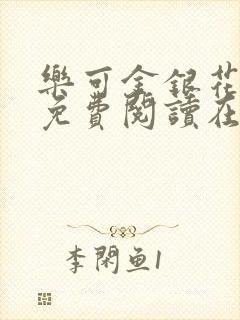 樂可金銀花
免費閱讀在
李閑魚1